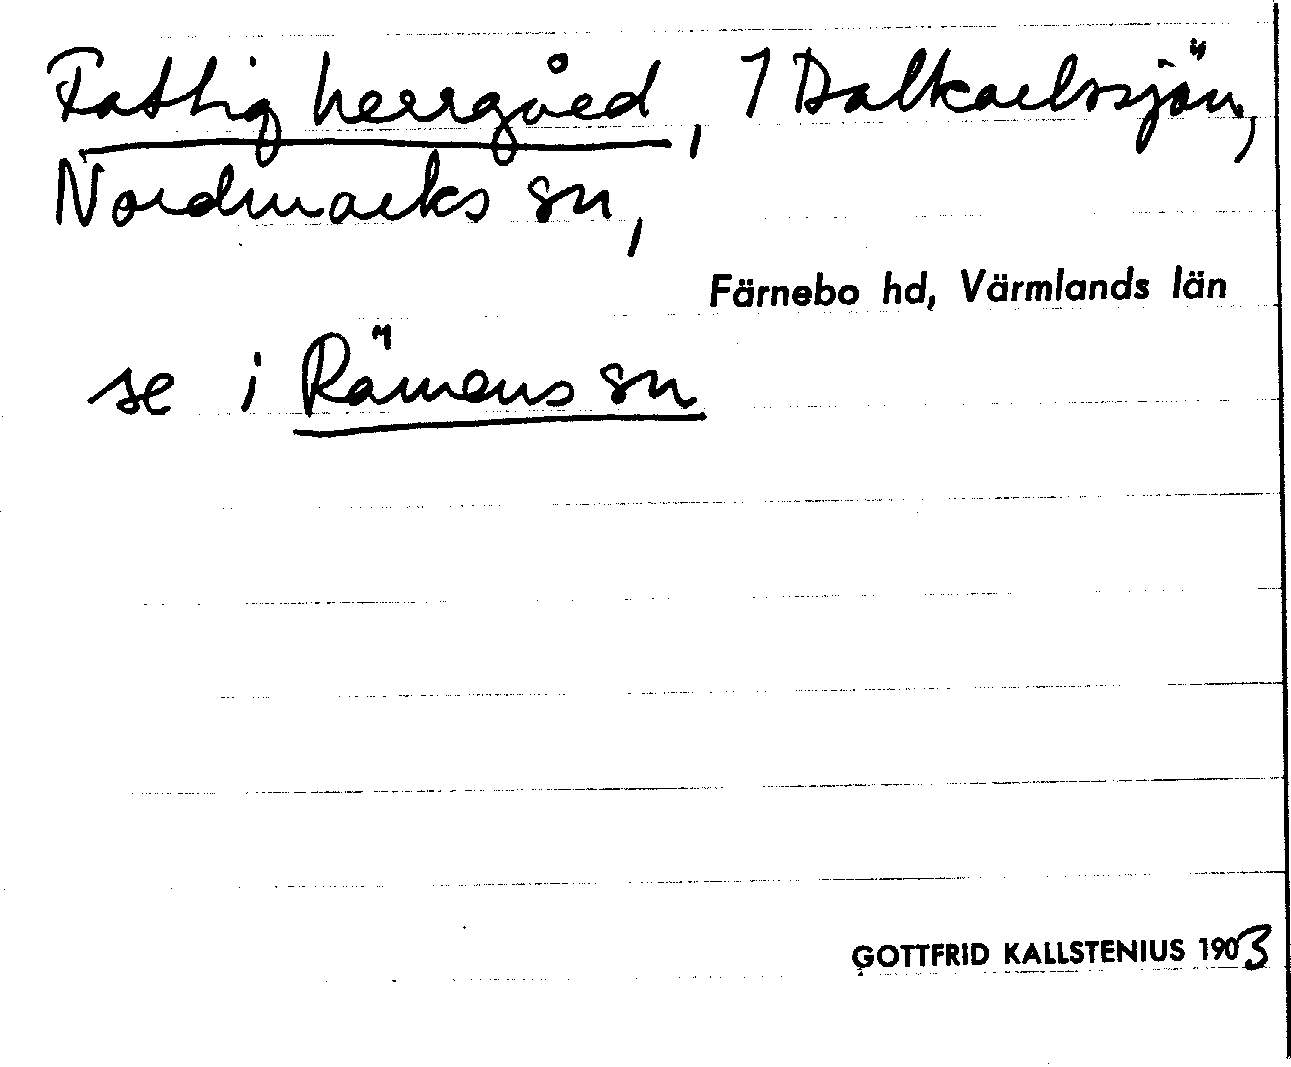 Fattig herrgård, 1 Dalkarlssjön,
Nordmarks sn,
Färnebo hd, Värmlands län
se i Rämens sn
GOTTFRID KALLSTENIUS 1903